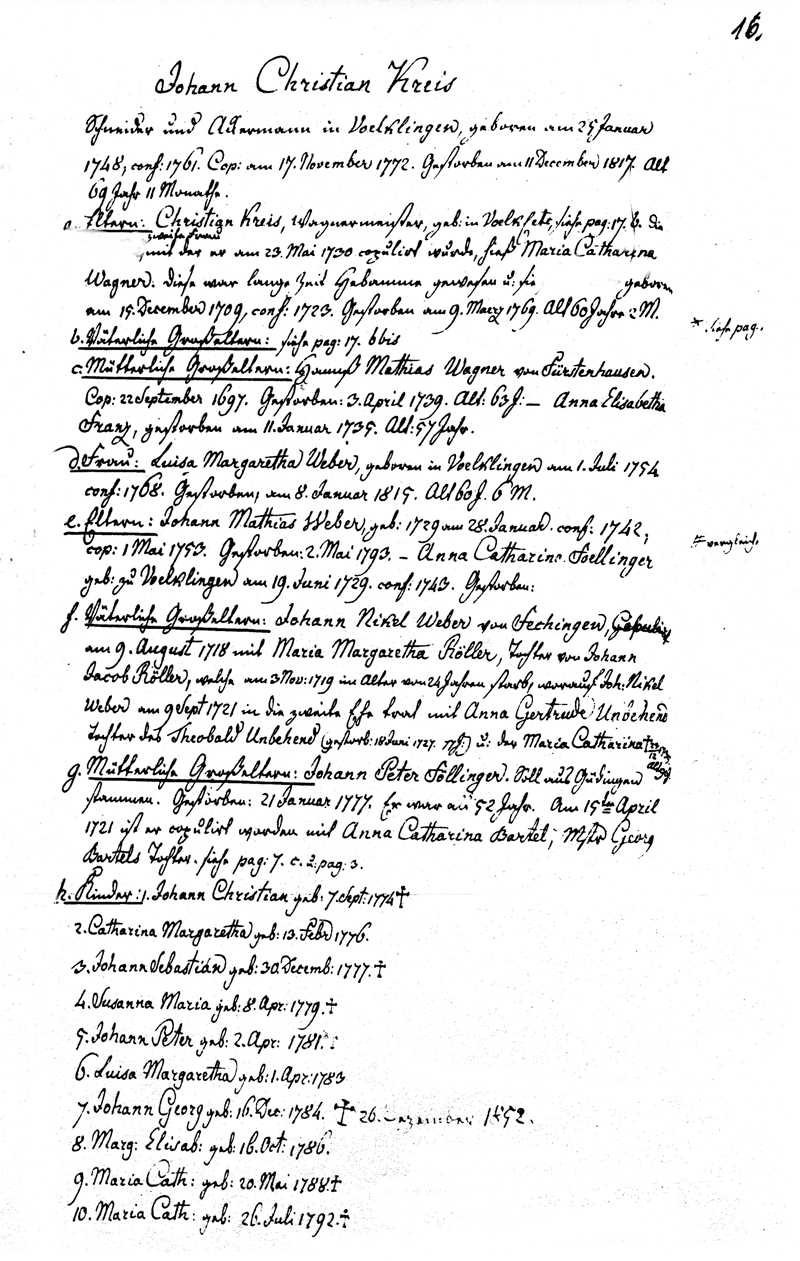 16.
Johann Christian Kreis
Schneider und Ackermann in Voelklingen, geboren am 25 Januar
1748, conf: 1761. Cop: am 17. November 1772. Gestorben am 11 December 1817. Alt
69 Jahr 11 Monathe.
a. Eltern: Christian Kreis, Wagnermeister, geb: in Voelkl siehe pag: 17. b. die
zweite Frau
mit der er am 23. Mai 1730 copulirt wurde, hieß Maria Catharina
Wagner. Diese war lange Zeit Hebamme gewesen u: sie geboren
am 15. December 1709, conf: 1723. Gestorben am 9. Maerz 1769. Alt 60 Jahre 2 M.
*. siehe pag.
b. Väterliche Großeltern: siehe pag: 17. b bis
c. Mütterliche Großeltern: Hannß Mathias Wagner von Fürstenhausen.
Cop: 22 September 1697. Gestorben: 3. April 1739. Alt: 63 J: – Anna Elisabetha
Franz, gestorben am 11. Januar 1735. Alt: 57 Jahr.
d. Frau: Luisa Margaretha Weber, geboren in Voelklingen am 1. Juli 1754
conf: 1768. Gestorben, am 8. Januar 1815. Alt 60 J. 6 M.
e. Eltern: Johann Mathias Weber, geb: 1729 am 28. Januar. conf: 1742,
cop: 1 Mai 1753. Gestorben: 2. Mai 1793. – Anna Catharina Foellinger
* vergleich.
geb: zu Voelklingen am 19. Juni 1729. conf: 1743. Gestorben:
f. Väterliche Großeltern: Johann Nikel Weber von Fechingen,
am 9. August 1718 mit Maria Margaretha Röller, Tochter von Johann
Jacob Röller, welche am 3 Nov: 1719 im Alter von 24 Jahren starb, worauf Joh: Nikel
Weber am 9 Sept 1721 in die zweite Ehe trat mit Anna Gertrude Unbehend
Tochter des Theobald Unbehend (gestorb: 18 Juni 1727. 77 J.) u: der Maria Catharina †
g. Mütterliche Großeltern: Johann Peter Föllinger. Soll aus Güdingen
stammen. Gestorben: 21 Januar 1777. Er war 52 Jahr. Am 15ten April
1721 ist er copulirt worden mit Anna Catharina Bartel, Mstr Georg
Bartels Tochter. siehe pag: 7. c. 2: pag: 3.
h. Kinder: 1. Johann Christian geb: 7. Sept: 1774 †
2. Catharina Margaretha geb: 13. Febr 1776.
3. Johann Sebastian geb: 30. Decemb: 1777. †
4. Susanna Maria geb: 8. Apr: 1779. †
5. Johann Peter geb: 2. Apr: 1781.
6. Luisa Margaretha geb: 1. Apr: 1783
7. Johann Georg geb: 16. Dec: 1784. † 26. Dezember 1852.
8. Marg: Elisab: geb: 16. Oct: 1786.
9. Maria Cath: geb: 20. Mai 1788 †
10. Maria Cath: geb: 26. Juli 1792. †